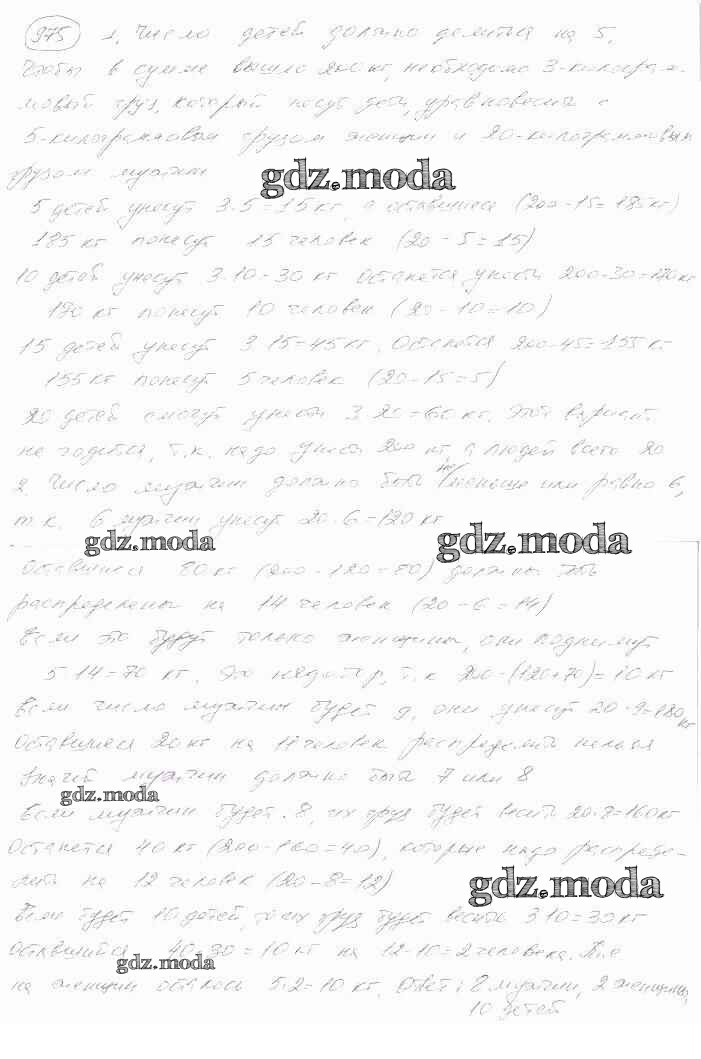 975 1, Число детей должно делиться на 5,
Чтобы в сумме вышло 200 кг, необходимо 3-килограм-
мовый груз, который несут дети, уравновесить с
5-килограммовым грузом женщин и 20-килограммовым
грузом мужчин
gdz.moda
5 детей унесут 3·5=15 кг, а оставшиеся (200-15=185кг)
185 кг понесут 15 человек (20-5=15)
10 детей унесут 3·10-30 кг Останется унести 200-30=170кг
170 кг понесут 10 человек (20-10=10)
15 детей унесут 3·15=45кг. Останется 200-45=155 кг
155кг понесут 5 человек (20-15=5)
20 детей смогут унести 3·20=60 кг. Этот вариант
не годится, т.к. надо унести 200 кг, а людей всего 20
2. Число мужчин должно быть не меньше или равно 6,
т.к. 6 мужчин унесут 20·6=120 кг
gdz.moda
gdz.moda
Оставшиеся 80кг (200-120=80) должны быть
распределены на 14 человек (20-6=14)
Если это будут только женщины, они поднимут
5·14=70 кг. Это недобор, т.к 200-(120+70)=10 кг
Если число мужчин будет 9, они унесут 20·9=180 кг
Оставшиеся 20кг на 11 человек распределить нельзя
Значит мужчин должно быть 7 или 8
gdz.moda
Если мужчин будет 8, их груз будет весить 20·8=160кг
Останется 40 кг (200-160=40), которые надо распреде-
лить на 12 человек (20-8=12)
gdz.moda
Если будет 10 детей, то их груз будет весить 3·10=30 кг
Оставшийся 40-30=10 кг на 12-10=2 человека. Т.е
gdz.moda
на женщин осталось 5·2=10 кг. Ответ: 8 мужчин, 2 женщины,
10 детей